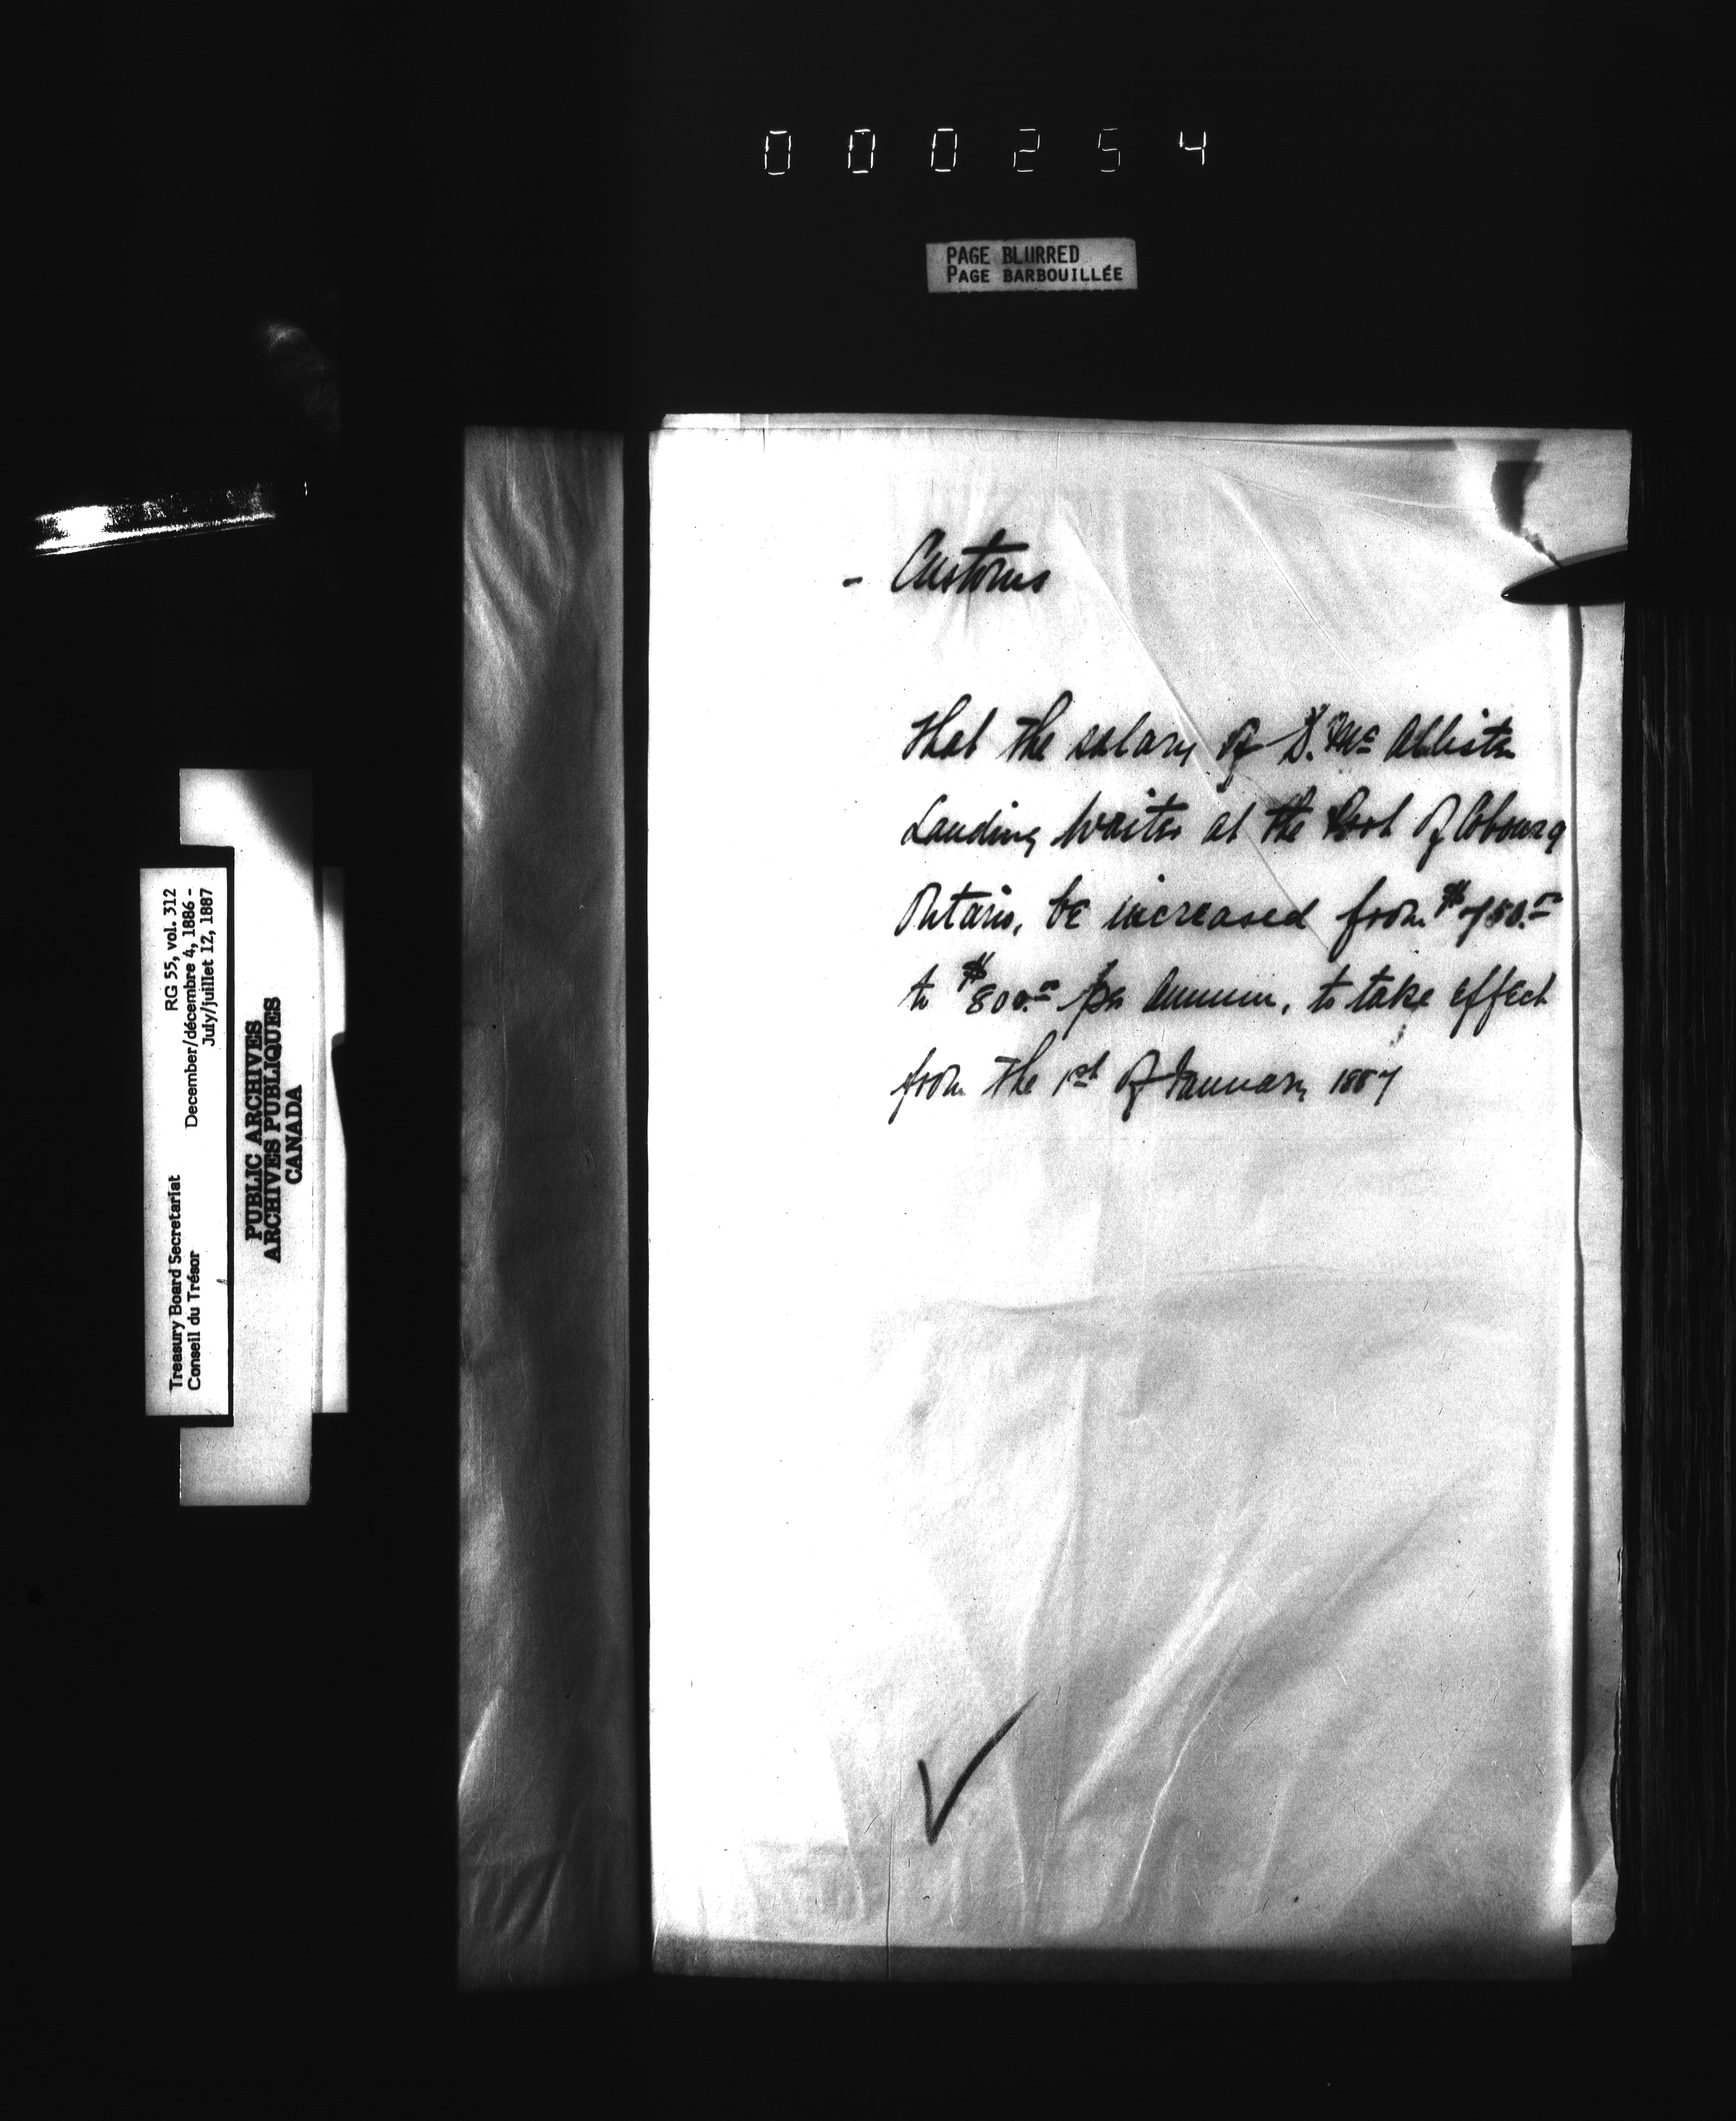 0 0 0 2 5 4
PAGE BLURRED
PAGE BARBOUILLÉE
- Customs
That the salary of D. Mc Allister
Landing Waiter at the Port of Cobourg
Ontario, be increased from $750.00
to $800.00 per Annum, to take effect
from the 1st of January 1887
Treasury Board Secretariat RG 55, vol. 312
Conseil du Trésor December/décembre 4, 1886 -
July/juillet 12, 1887
PUBLIC ARCHIVES
ARCHIVES PUBLIQUES
CANADA